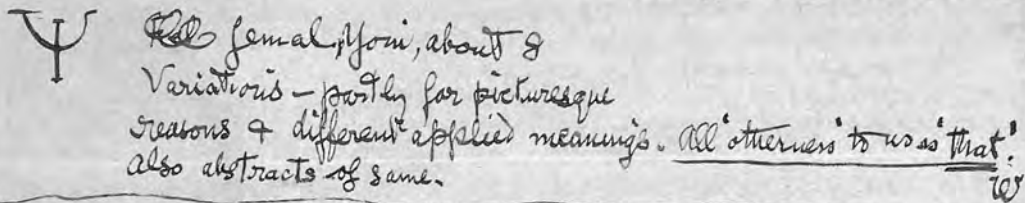 femal, Yoni, about 8
Variations – partly for picturesque
reasons & different applied meanings. All 'otherness' to us is 'that'.
also abstracts of same.